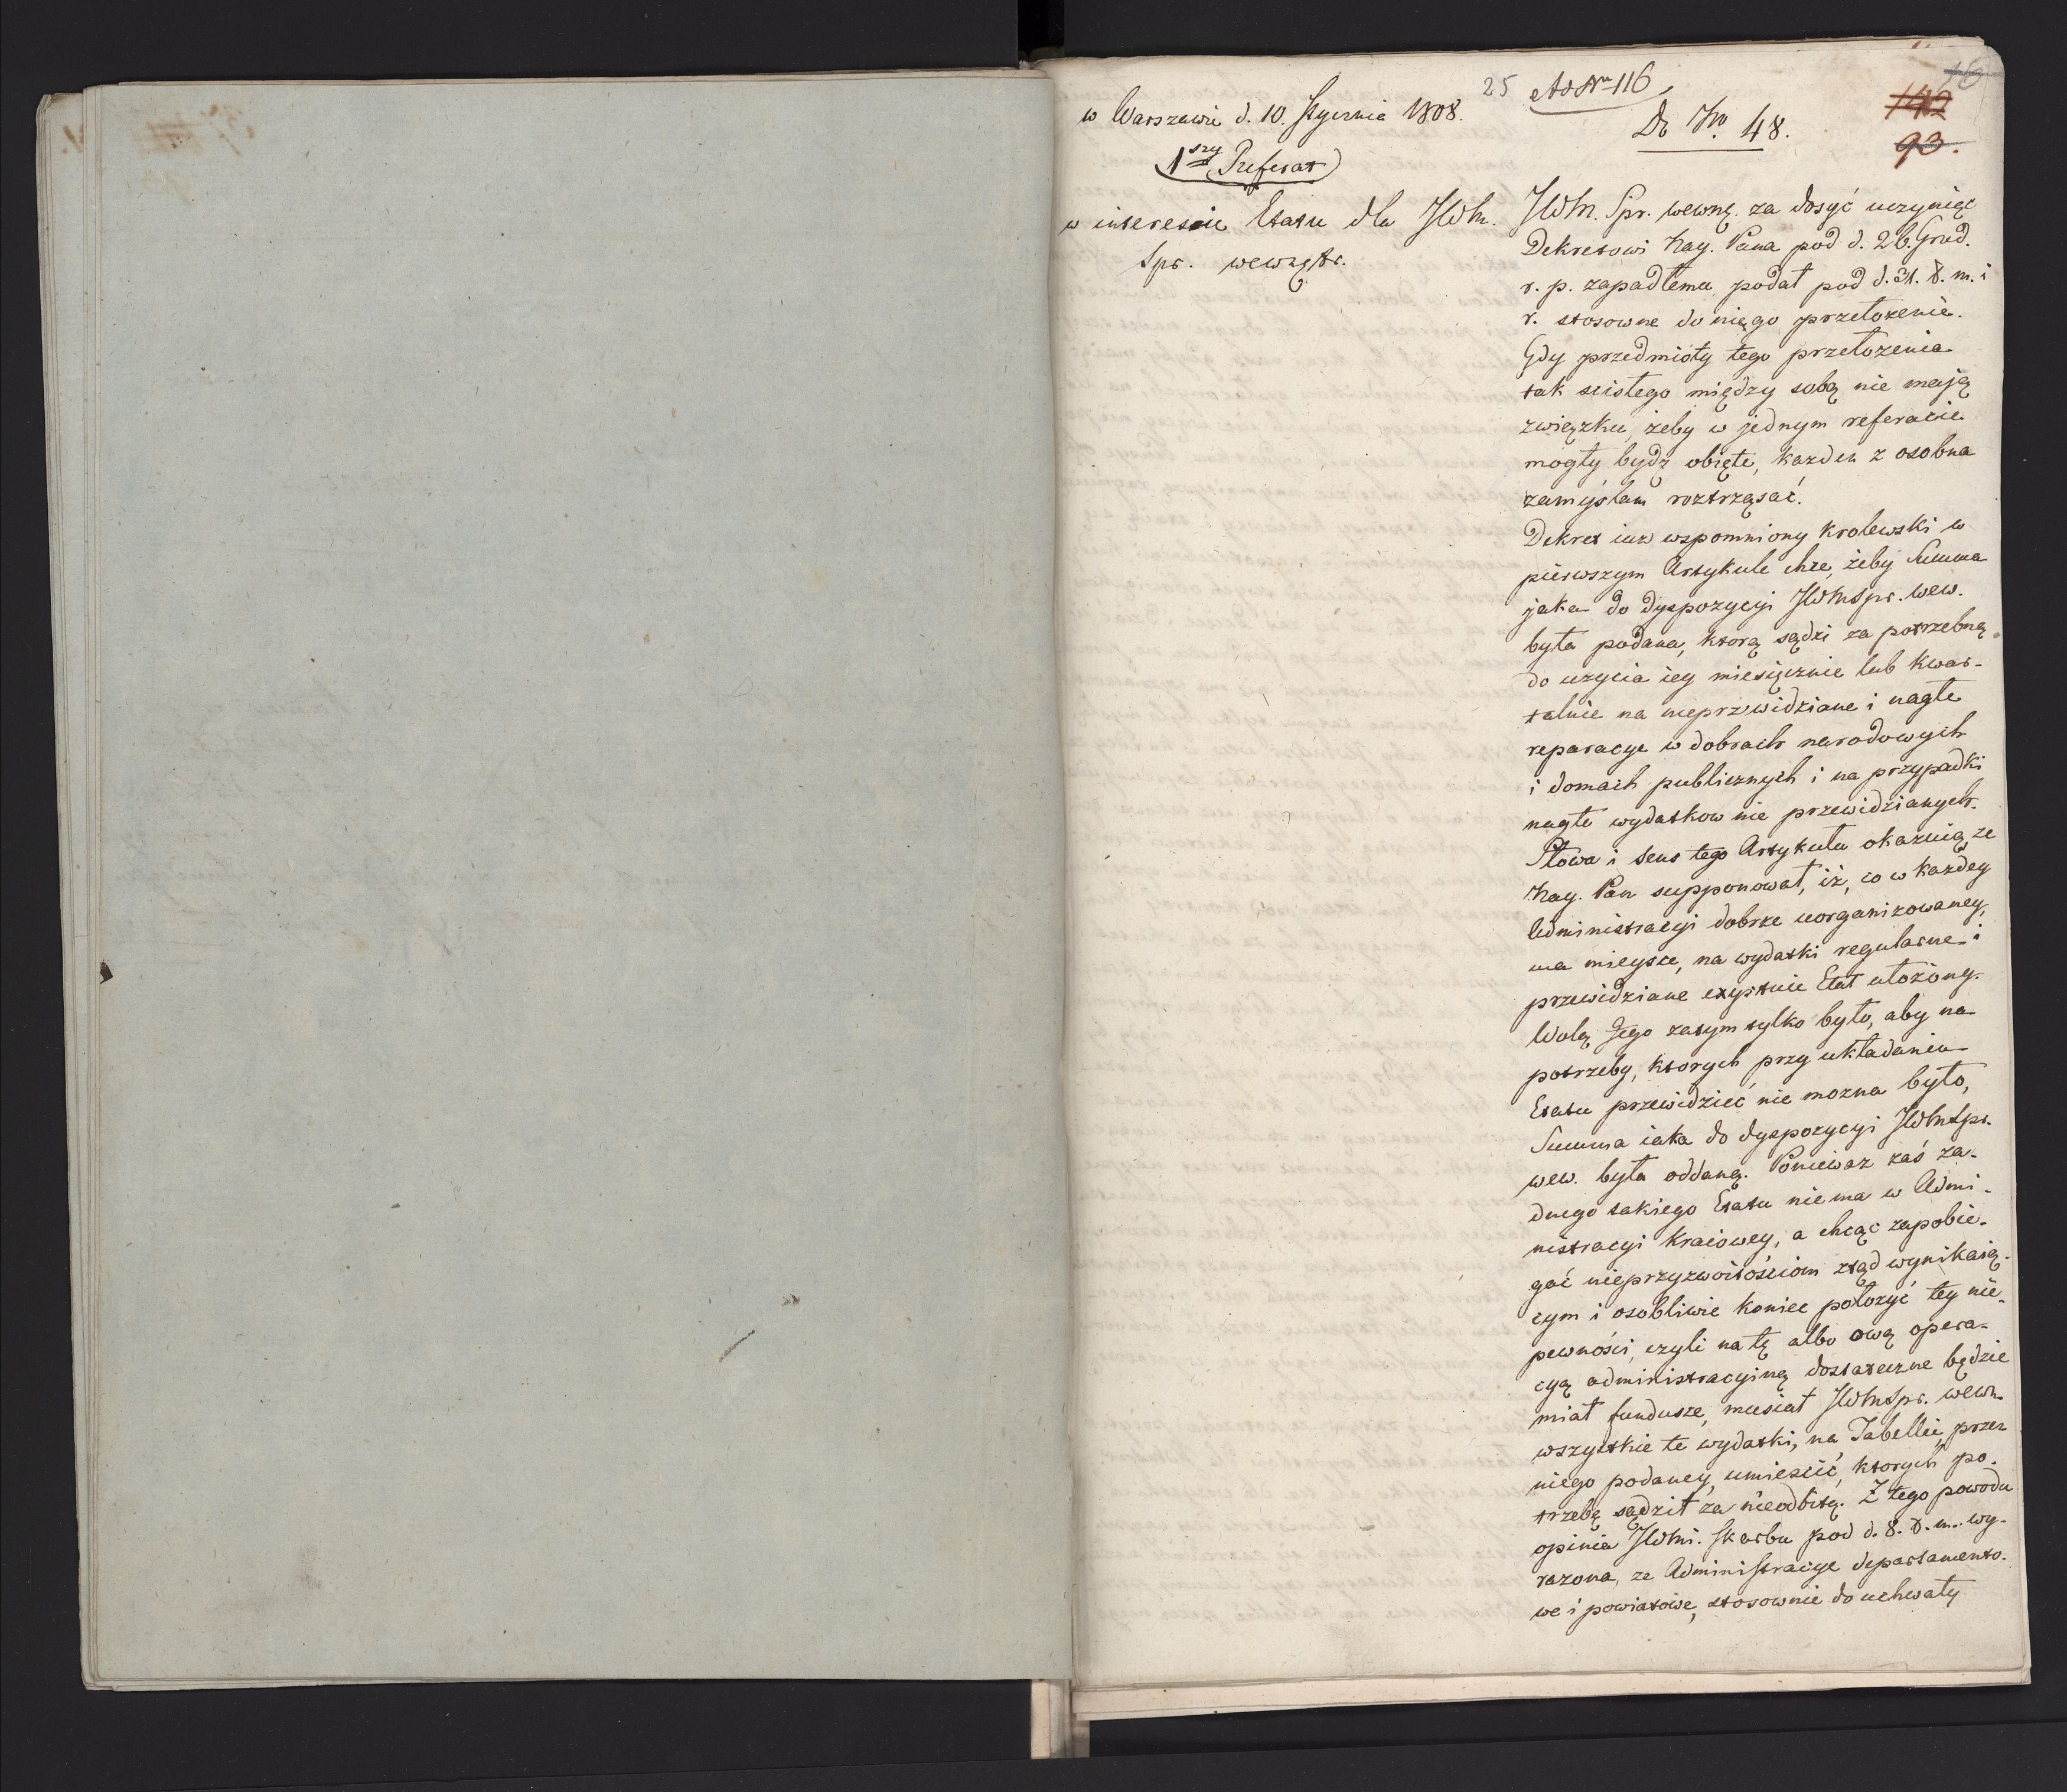 25 Ad Nr 116
16
w Warszawie d. 10. Stycznia 1808.
Do Nr. 48.
142
93.
1szy Referat
w interessie Etatu dla JWM.
Spr. wewnętr.
JWM. Spr. wewnę. za dosyć uczynięc
Dekretowi Nay. Pana pod d. 26. Grud.
r. p. zapadłemu podał pod d. 31. t. m. i
r. stosowne do niego przełożenie.
Gdy przedmioty tego przełożenia
tak scisłego między sobą nie mają
związku, żeby w jednym referacie
mogły bydz obięte, każden z osobna
zamyślam roztrząsać.
Dekret iuz wspomniony Krolewski w
pierwszym Artykule chce, żeby Summa
jaka do dyspozycyi JWMSpr. wew.
była podana, ktorą sądzi za potrzebną
do uzycia iey miesięcznie lub kwar-
talnie na nieprzewidziane i nagłe
reparacye w dobrach narodowych
i domach publicznych i na przypadki
nagłe wydatkow nie przewidzianych.
Słowa i sens tego Artykułu okazuią ze
Nay. Pan supponował, iż, co w każdey
Administracyi dobrze uorganizowaney,
ma mieysce, na wydatki regularne i
przewidziane exystuie Etat ułożony.
Wolą Jego zatym tylko było, aby na
potrzeby, ktorych przy układaniu
Etatu przewidzieć nie mozna było,
Summa iaka do dyspozycyi JWMSpr.
wew. była oddaną. Ponieważ zaś ża-
dnego takiego Etatu niema w Admi-
nistracyi Kraiowey, a chcąc zapobie-
gać nieprzyzwoitościom ztąd wynikaią-
cym i osobliwie koniec położyć tey nie-
pewności, czyli na tę albo ową opera-
cyą administracyiną dostateczne będzie
miał fundusze, musiał JWMSpr. wewn.
wszystkie te wydatki, na Tabellii przez
niego podaney, umieścić, ktorych po-
trzebę sądził za nieodbitą. Z tego powodu
opinia JWMi. Skarbu pod d. 8. t. m. wy-
razona, ze Administracye departamento-
we i powiatowe, stosownie do uchwały